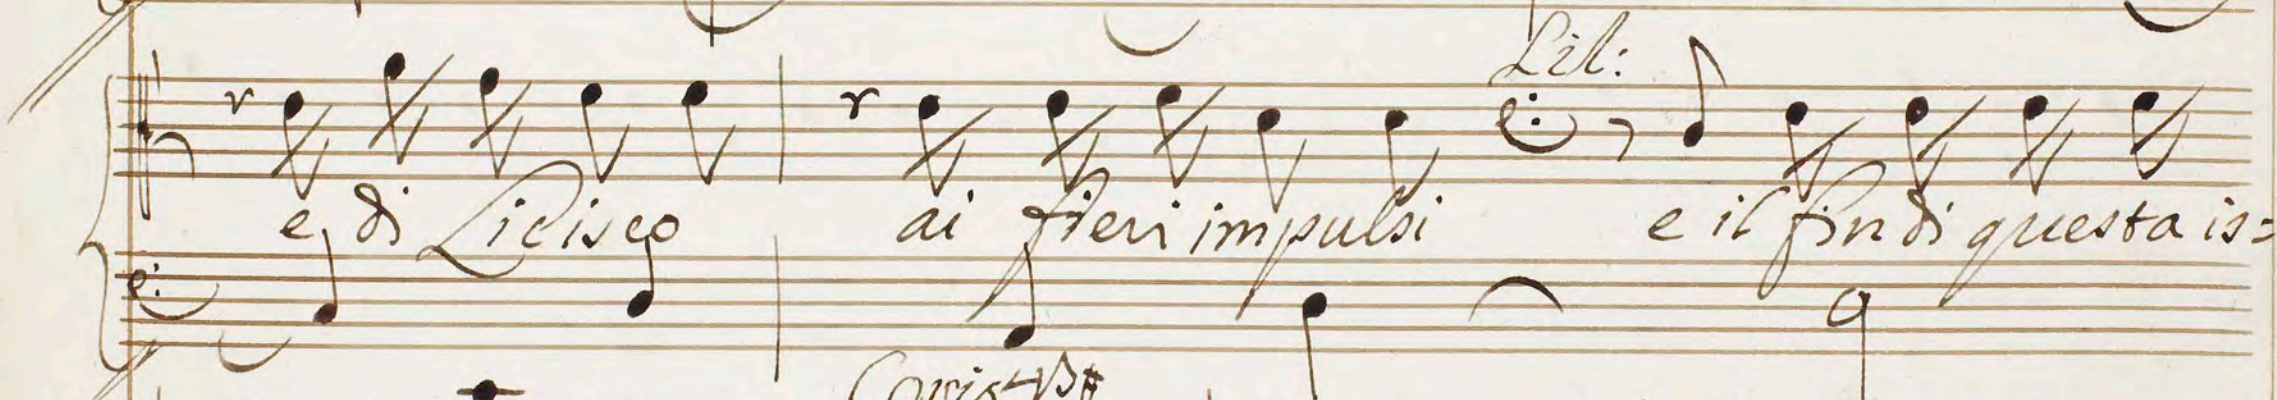 Lil:
e di Licisco ai fieri impulsi e il fin di questa is=